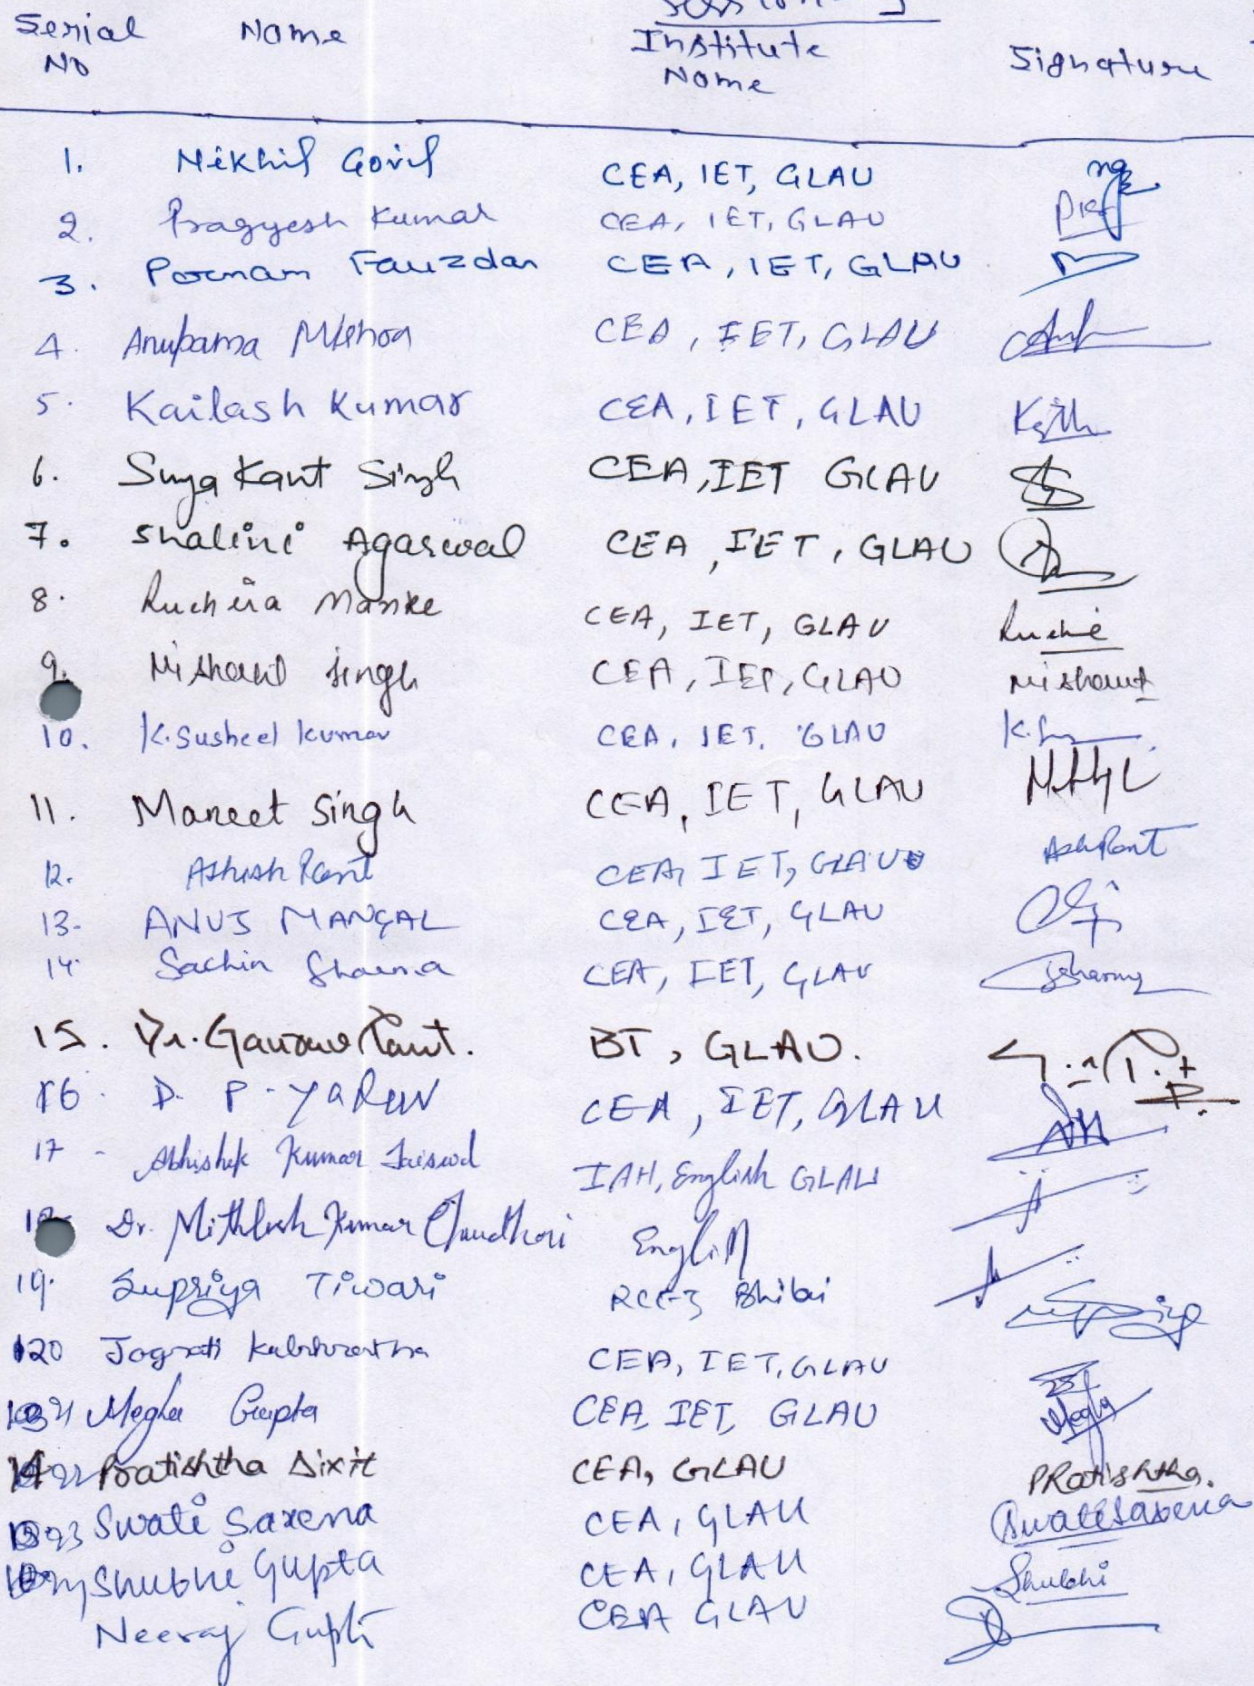 Serial NO Name Institute Name Signature
1. Nikhil Govil CEA, IET, GLAU
2. Pragyesh Kumar CEA, IET, GLAU
3. Poonam Fauzdar CEA, IET, GLAU
4. Anupama Mishra CEA, IET, GLAU
5. Kailash Kumar CEA, IET, GLAU
6. Surya Kant Singh CEA, IET GLAU
7. Shalini Agarwal CEA, IET, GLAU
8. Ruchira CEA, IET, GLAU Ruchi
9. Nishant Singh CEA, IET, GLAU Nishant
10. K. Susheel Kumar CEA, IET, GLAU
11. Maneet Singh CEA, IET, GLAU
12. Ashish Pant CEA, IET, GLAU
13. ANUJ MANGAL CEA, IET, GLAU
14 Sachin Sharma CEA, IET, GLAU
15. Dr. Gaurav Pant. BT, GLAU.
16. D. P. Yadav CEA, IET, GLAU
17 - Abhishek Kumar Jaiswal IAH, English GLAU
18. Dr. Mithlesh Kumar Chaudhori English
19. Supriya Tiwari Bhilai
20 Jagrati CEA, IET, GLAU
21 Megha Gupta CEA, IET, GLAU Megha
22 Pratishtha Dixit CEA, GLAU PRatishtha.
23 Swati Saxena CEA, GLAU Swati Saxena
Shubhi Gupta CEA, GLAU Shubhi
Neeraj Gupta CEA GLAU